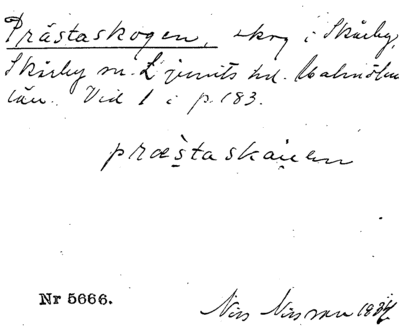 Prästaskogen, skog i Skårby,
Skårby sn. Ljunits hd. Malmöhus
län. Vid 1 i p. 183.
præstaskåuen
Nr 5666.
Nils Nilsson 1934